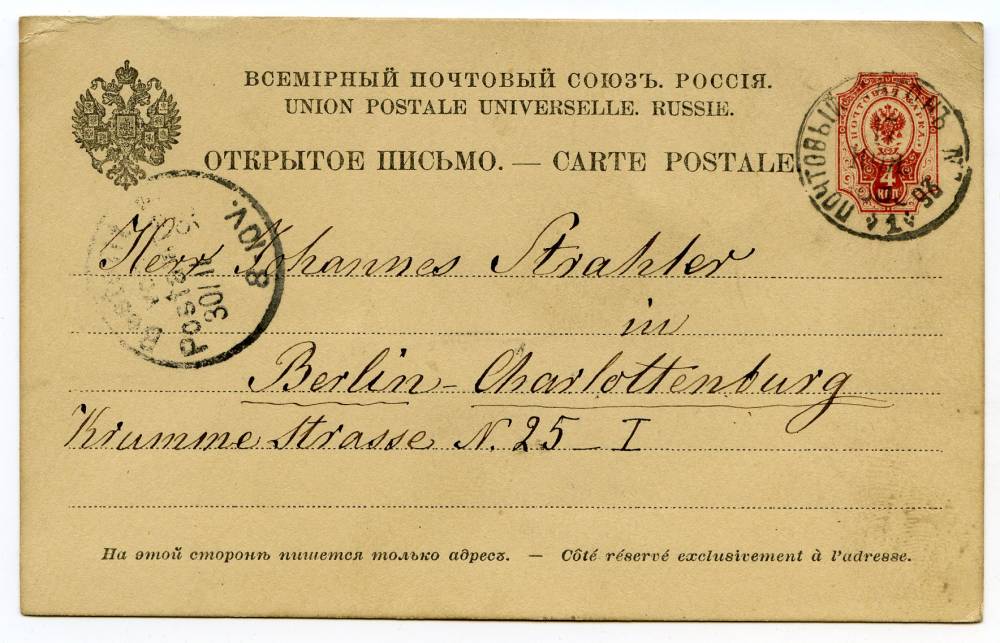 ВСЕМІРНЫЙ ПОЧТОВЫЙ СОЮЗЪ. РОССІЯ.
UNION POSTALE UNIVERSELLE. RUSSIE.
ОТКРЫТОЕ ПИСЬМО. — CARTE POSTALE.
ПОЧТОВАЯ МАРКА
4
КОП.
ПОЧТОВЫЙ
93
Bestellt
Postamte
30/11
8-10V.
Herr Johannes Strahler
in
Berlin-Charlottenburg
Krumme Strasse N. 25 - I
На этой сторонѣ пишется только адресъ. — Côté réservé exclusivement à l'adresse.